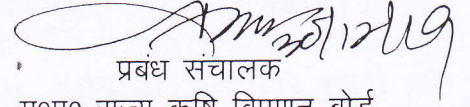 प्रबंध संचालक
म०प्र० राज्य कृषि विपणन बोर्ड